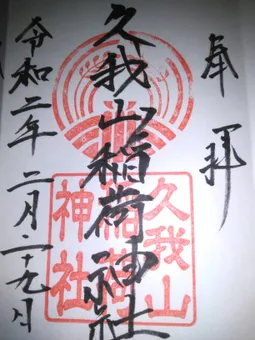 奉拝
久我山稲荷神社
久我山
稲荷
神社
令和二年二月二十九日